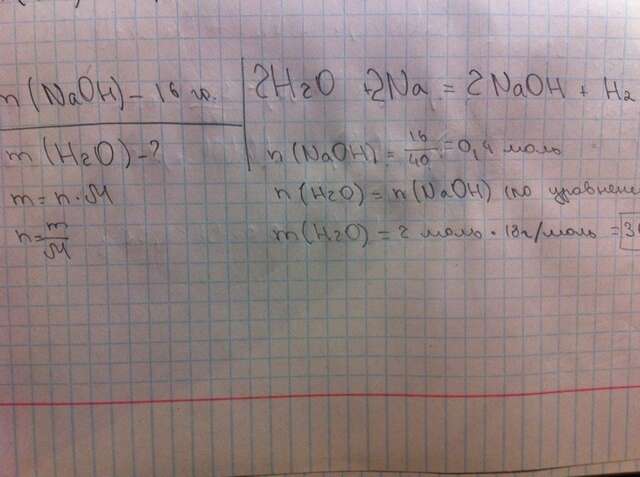 n(NaOH) - 16 гр.
m(H2O) - ?
m = n · M
n = m/M
2H2O + 2Na = 2NaOH + H2
n(NaOH) = 16/40 = 0,4 моль
n(H2O) = n(NaOH) (по уравнени
m(H2O) = 2 моль · 18г/моль = 3